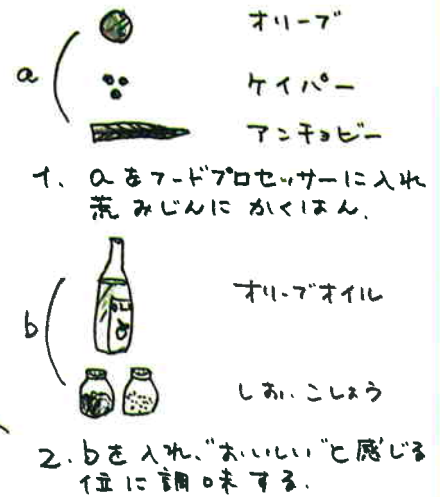 オリーブ
a
ケイパー
アンチョビー
1. aをフードプロセッサーに入れ
荒みじんに かくはん.
オリーブオイル
b
しお、こしょう
2. bを入れ、"おいしい"と感じる
位に調味する.